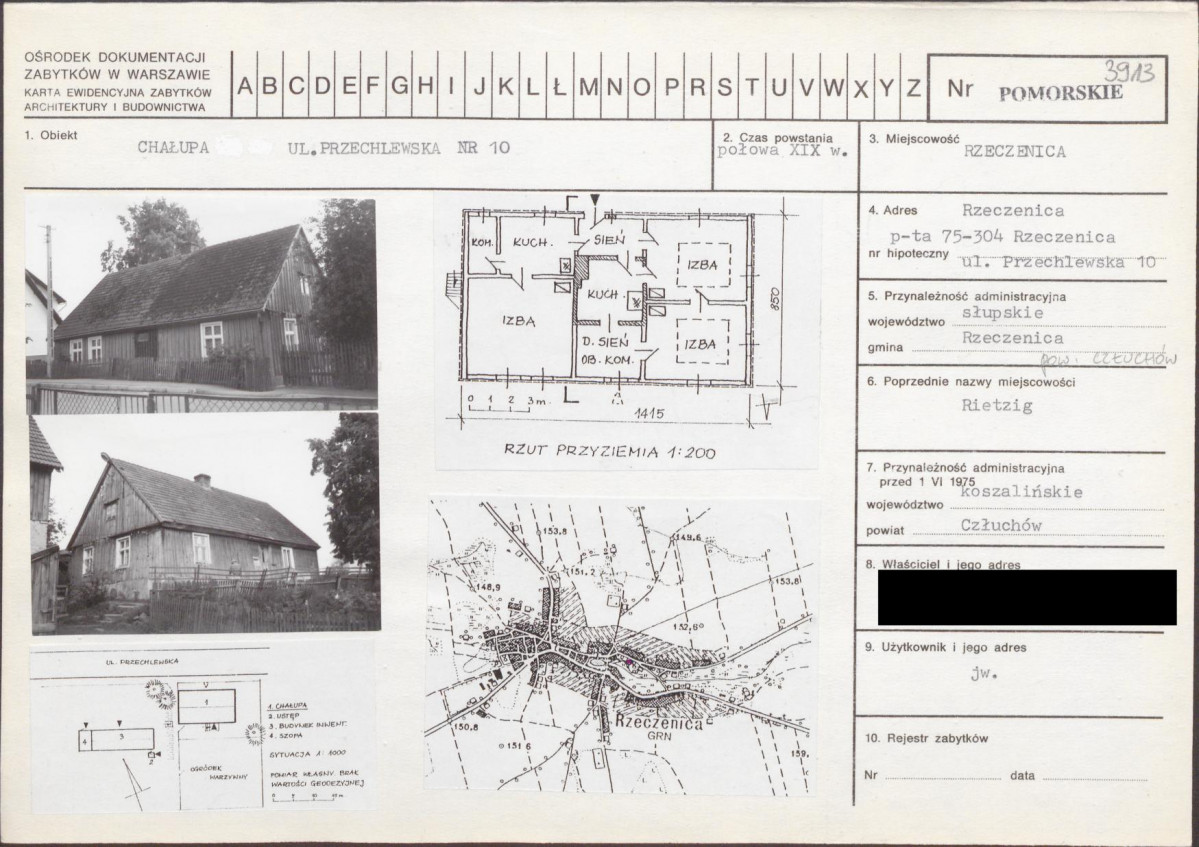 OŚRODEK DOKUMENTACJI
ZABYTKÓW W WARSZAWIE
KARTA EWIDENCYJNA ZABYTKÓW
ARCHITEKTURY I BUDOWNICTWA
A B C D E F G H I J K L Ł M N O P R S T U V W X Y Z
Nr POMORSKIE 3913
1. Obiekt
CHAŁUPA UL. PRZECHLEWSKA NR 10
2. Czas powstania
połowa XIX w.
3. Miejscowość
RZECZENICA
4. Adres Rzeczenica
p-ta 75-304 Rzeczenica
nr hipoteczny ul. Przechlewska 10
5. Przynależność administracyjna
województwo słupskie
gmina Rzeczenica
pow. CZŁUCHÓW
6. Poprzednie nazwy miejscowości
Rietzig
7. Przynależność administracyjna
przed 1 VI 1975
województwo koszalińskie
powiat Człuchów
8. Właściciel i jego adres
9. Użytkownik i jego adres
jw.
10. Rejestr zabytków
Nr data
KOM. KUCH. SIEŃ
IZBA
KUCH.
IZBA
D. SIEŃ
OB. KOM.
IZBA
850
0 1 2 3 m.
1415
RZUT PRZYZIEMIA 1:200
153.8
149.6
151.2
148.9
153.8
152.6
150.8
151.6
159.
Rzeczenica
GRN
UL. PRZECHLEWSKA
1
3
4
2
OGRÓDEK
WARZYWNY
1. CHAŁUPA
2. USTĘP
3. BUDYNEK INWENT.
4. SZOPA
SYTUACJA 1:1000
POMIAR WŁASNY. BRAK
WARTOŚCI GEODEZYJNEJ